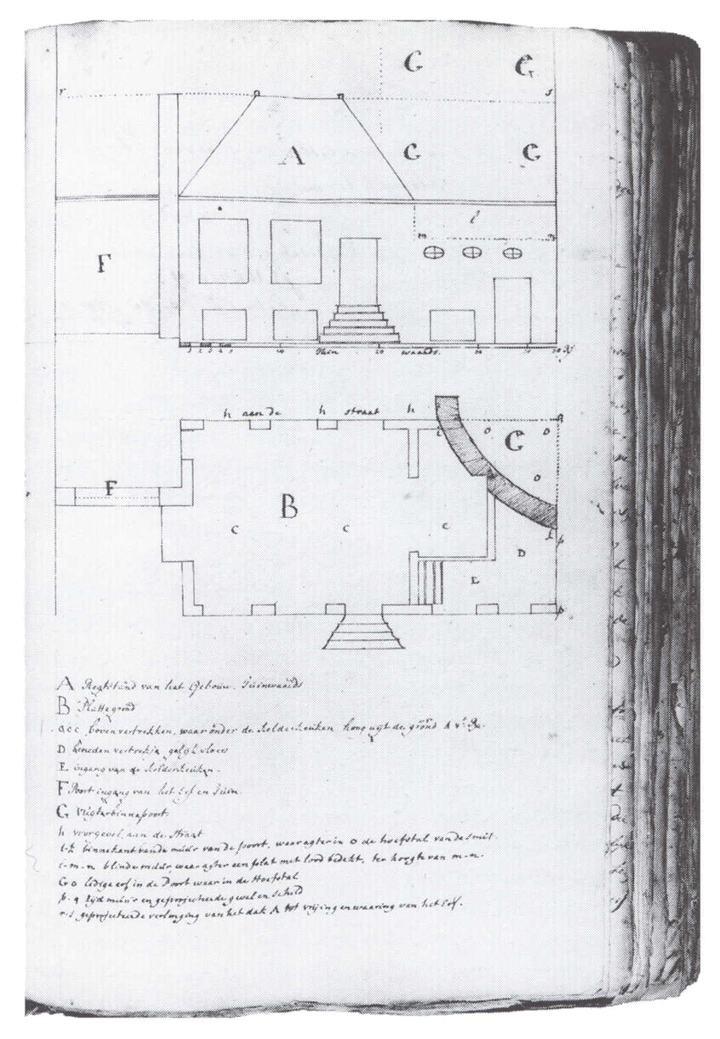 G G
r s
A G G
l
m n
F
1 2 3 4 5 10 20
h aan de h straat h
i o o q
G
F o
B
c c c
k p
D
E
p
A Regtstand van het Gebouw. Tuinwaards
B Platte grond
c c c bovenvertrekken, waar onder de kelderkeuken hoog uyt de grond
D beneden vertrekje gelijk vloers
E ingang van de kelderkeuken.
F Poort ingang van het Erf en Tuin.
G Vrijgterbinnepoort
h voorgevel aan de Straat
i-k binnekant van de muur van de poort, waar agter in o de hoefstal van de smit.
l-m-n blinde muur, waar agter een plat met lood bedekt, ter hoogte van m-n.
G o ledige erf in de Poort waar in de Hoefstal
p. q zijdmuur en geprojecteerde gevel en schuld
r. s geprojecteerde verlenging van het dak A tot vrijing en waaring van het Erf.